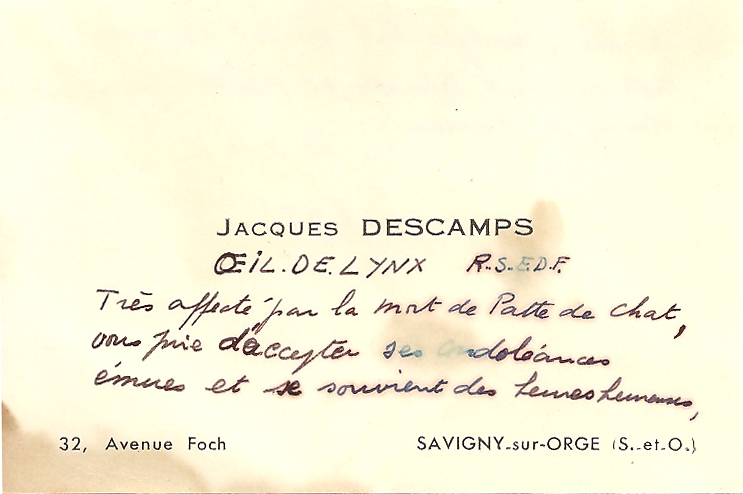 JACQUES DESCAMPS
ŒIL.DE.LYNX R.S.E.D.F.
Très affecté par la mort de Patte de Chat,
vous prie d'accepter ses condoléances
émues et se souvient des heures heureuses,
32, Avenue Foch SAVIGNY-sur-ORGE (S.-et-O.)